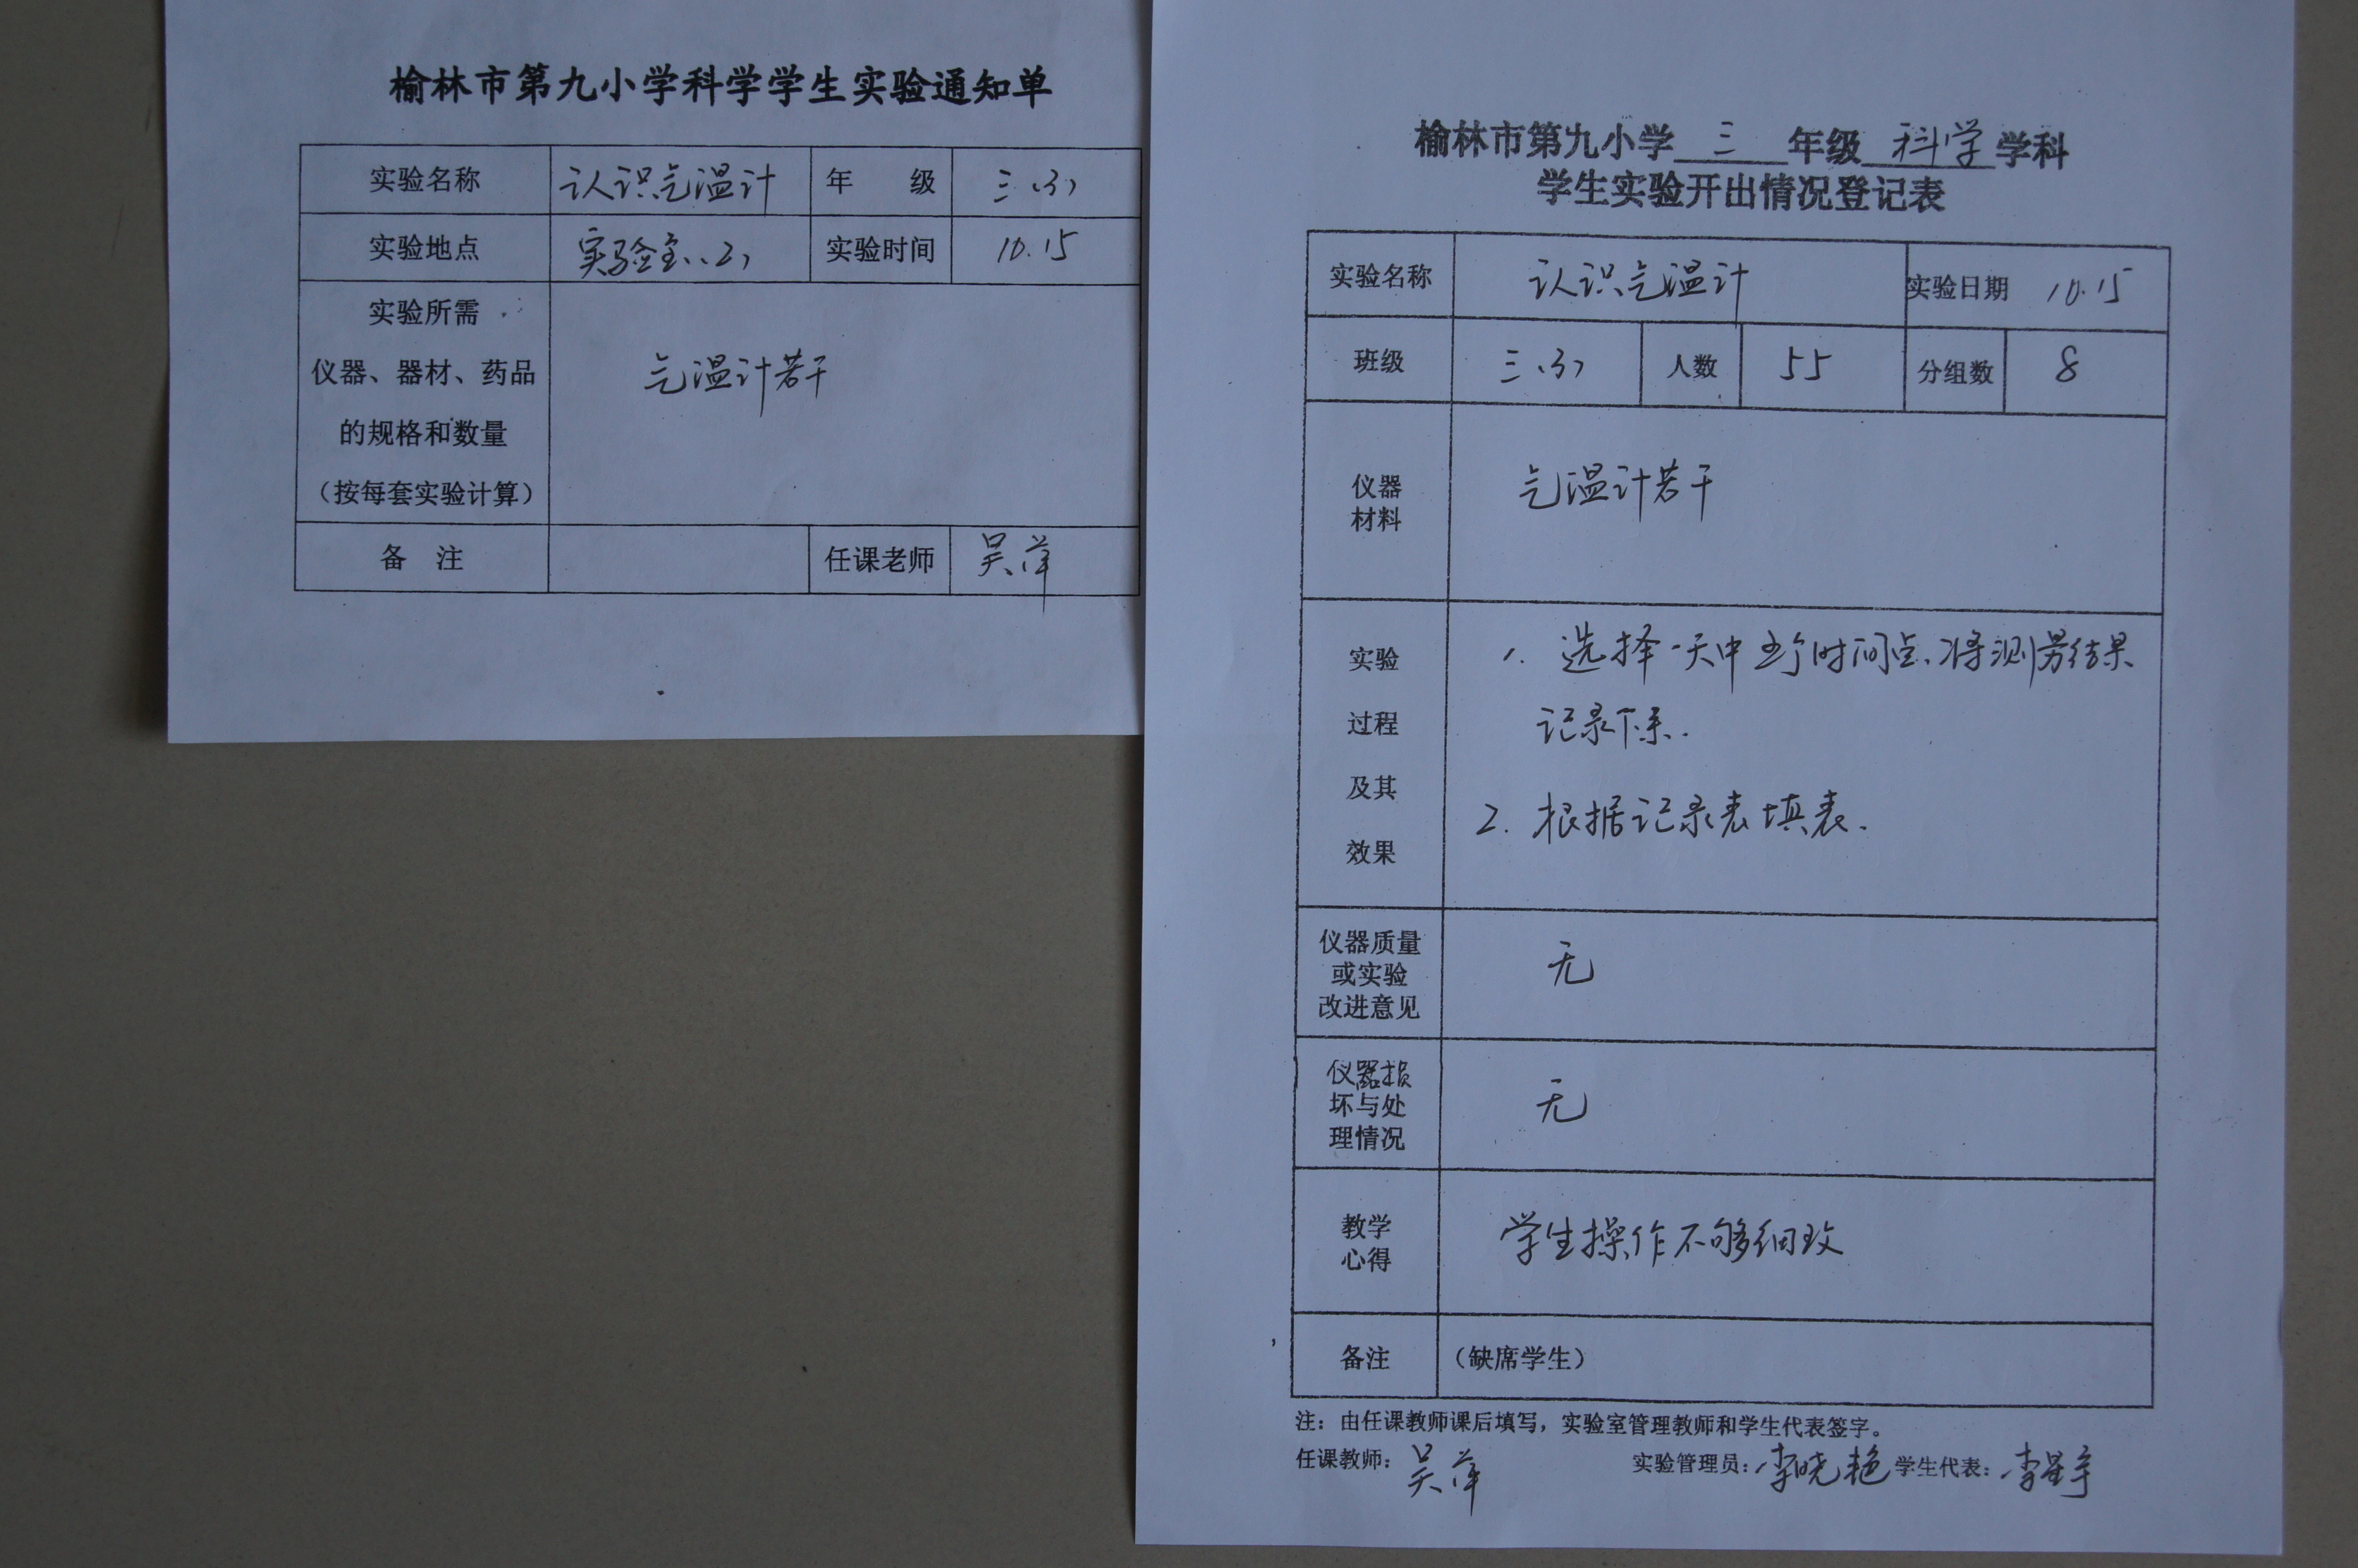 榆林市第九小学科学学生实验通知单
实验名称 认识气温计 年 级 三(3)
实验地点 实验室(2) 实验时间 10.15
实验所需
仪器、器材、药品
的规格和数量
(按每套实验计算)
气温计若干
备 注 任课老师 吴萍
榆林市第九小学 三 年级 科学 学科
学生实验开出情况登记表
实验名称 认识气温计 实验日期 10.15
班级 三(3) 人数 55 分组数 8
仪器
材料
气温计若干
实验
过程
及其
效果
1. 选择一天中五个时间点、将测量结果
记录下来.
2. 根据记录表填表.
仪器质量
或实验
改进意见
无
仪器损
坏与处
理情况
无
教学
心得
学生操作不够细致
备注 (缺席学生)
注:由任课教师课后填写,实验室管理教师和学生代表签字。
任课教师: 吴萍 实验管理员: 李晓艳 学生代表: 李星宇